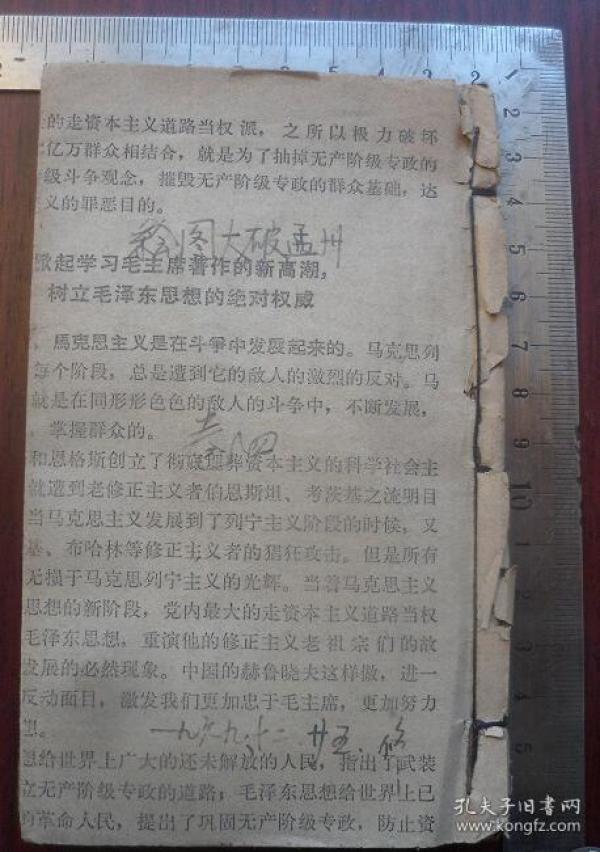 的走资本主义道路当权派，之所以极力破坏
亿万群众相结合，就是为了抽掉无产阶级专政的
级斗争观念，摧毁无产阶级专政的群众基础，达
义的罪恶目的。
绘图大破孟州
掀起学习毛主席著作的新高潮，
树立毛泽东思想的绝对权威
马克思主义是在斗争中发展起来的。马克思列
每个阶段，总是遭到它的敌人的激烈的反对。马
就是在同形形色色的敌人的斗争中，不断发展，
掌握群众的。
卷四
和恩格斯创立了彻底埋葬资本主义的科学社会主
就遭到老修正主义者伯恩斯坦、考茨基之流明目
当马克思主义发展到了列宁主义阶段的时候，又
基、布哈林等修正主义者的猖狂攻击。但是所有
无损于马克思列宁主义的光辉。当着马克思主义
思想的新阶段，党内最大的走资本主义道路当权
毛泽东思想，重演他的修正主义老祖宗们的故
发展的必然现象。中国的赫鲁晓夫这样做，进一
反动面目，激发我们更加忠于毛主席，更加努力
想。
一九六九、十二、廿五、修
想给世界上广大的还未解放的人民，指出了武装
立无产阶级专政的道路；毛泽东思想给世界上已
的革命人民，提出了巩固无产阶级专政，防止资
2 3 4 5 6 7 8 9 10 1
孔夫子旧书网
www.kongfz.com